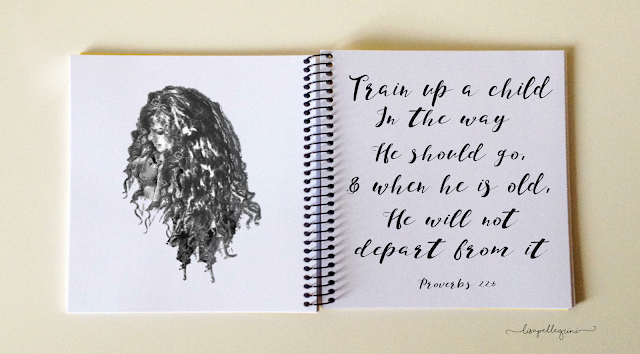 Train up a child
In the way
He should go,
& when he is old,
He will not
depart from it
Proverbs 22:6
lisapellegrini